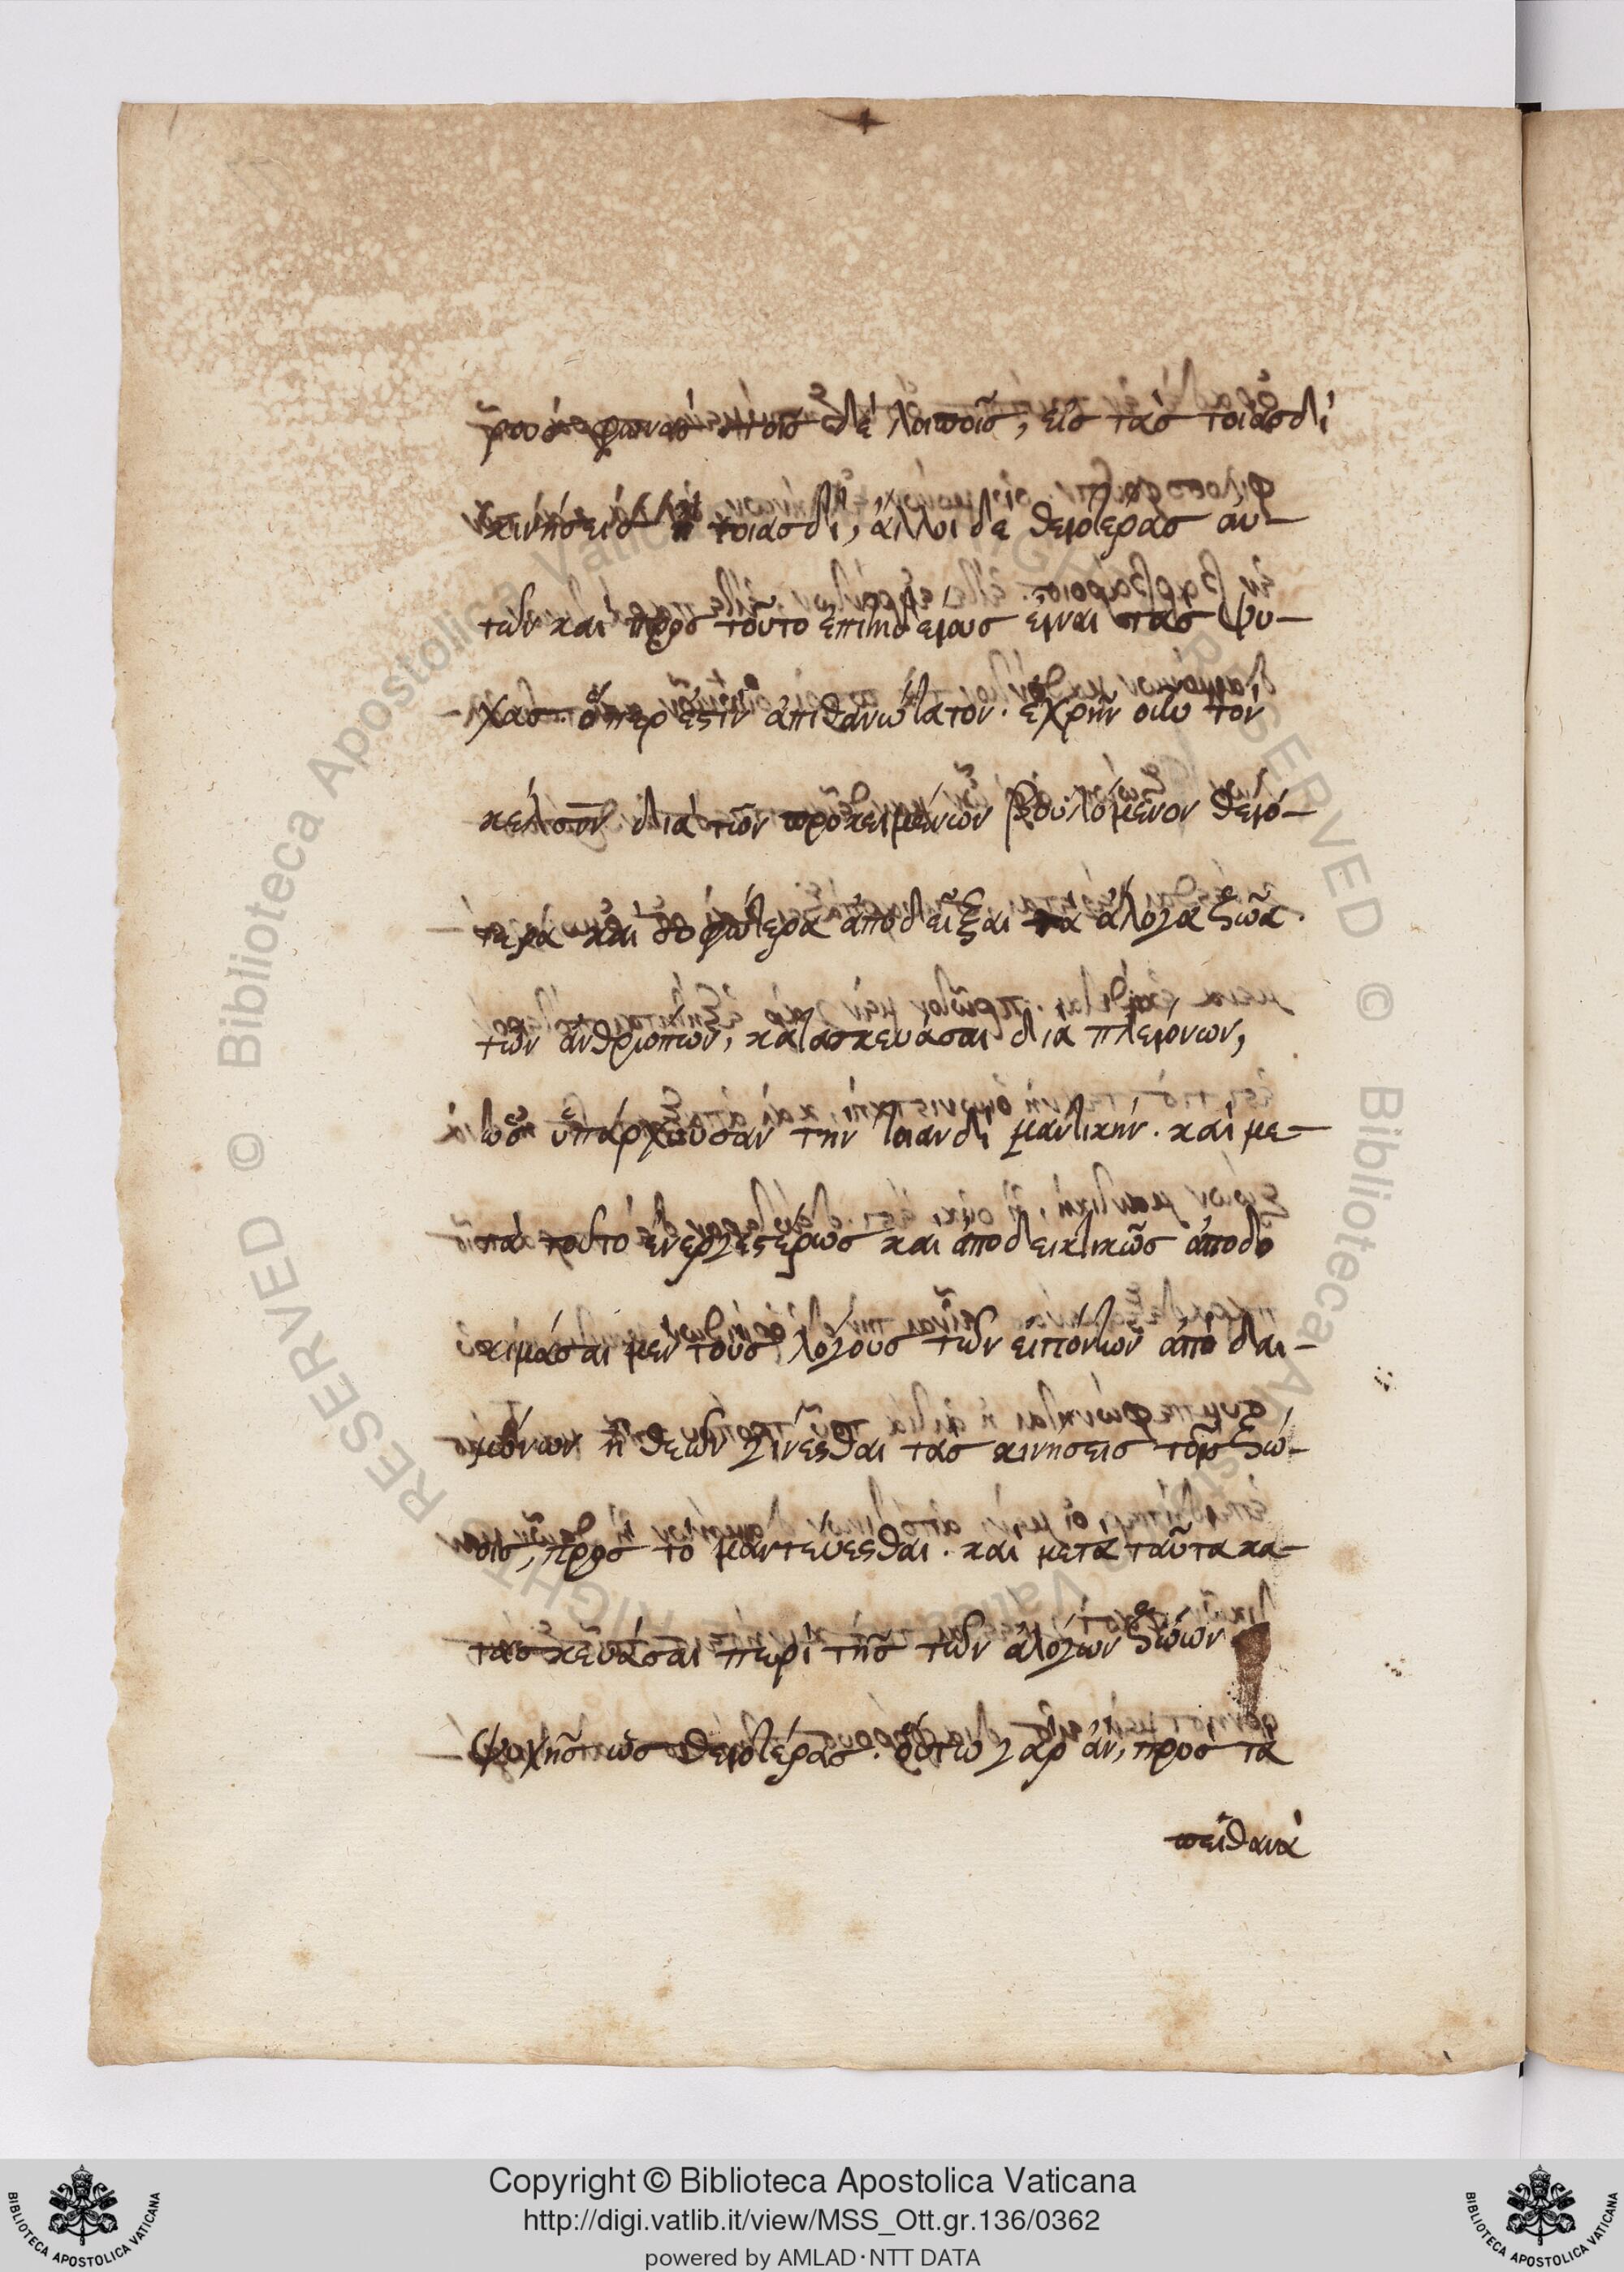 ρους φωνὰς τοῖς δὲ λοιποῖς, εἰς τὰς τοιάσδι
κινήσεις ἢ τοιάσδι, ἄλλοι δὲ θειοτέρας αὐ-
τῶν καὶ πρὸς τοῦτο ἐπιτηδείους εἶναι τὰς ψυ-
χάς. ὅπερ ἐστὶν ἀπιθανώτατον. ἐχρῆν οὖν τὸν
κέλσον διὰ τῶν προκειμένων βουλόμενον θειό-
τερα καὶ σοφώτερα ἀποδεῖξαι τὰ ἄλογα ζῶα.
τῶν ἀνθρώπων, κατασκευάσαι διὰ πλειόνων,
ὡς ὑπάρχουσαν τὴν τοιανδὶ μαντικήν. καὶ με-
τὰ τοῦτο ἐνεργεστέρως καὶ ἀποδεικτικῶς ἀποδο
κιμάσαι μὲν τοὺς λόγους τῶν εἰπόντων ἀπὸ δαι-
μόνων ἢ θεῶν γίνεσθαι τὰς κινήσεις τοῖς ζώ-
οις, πρὸς τὸ μαντεύεσθαι. καὶ μετὰ ταῦτα κα-
τασκευάσαι περὶ τῆς τῶν ἀλόγων ζώων
ψυχῆς ὡς θειοτέρας. οὕτω γὰρ ἂν, πρὸς τὰ
πειθανὰ
Copyright © Biblioteca Apostolica Vaticana
http://digi.vatlib.it/view/MSS_Ott.gr.136/0362
powered by AMLAD·NTT DATA
BIBLIOTECA APOSTOLICA VATICANA
BIBLIOTECA APOSTOLICA VATICANA